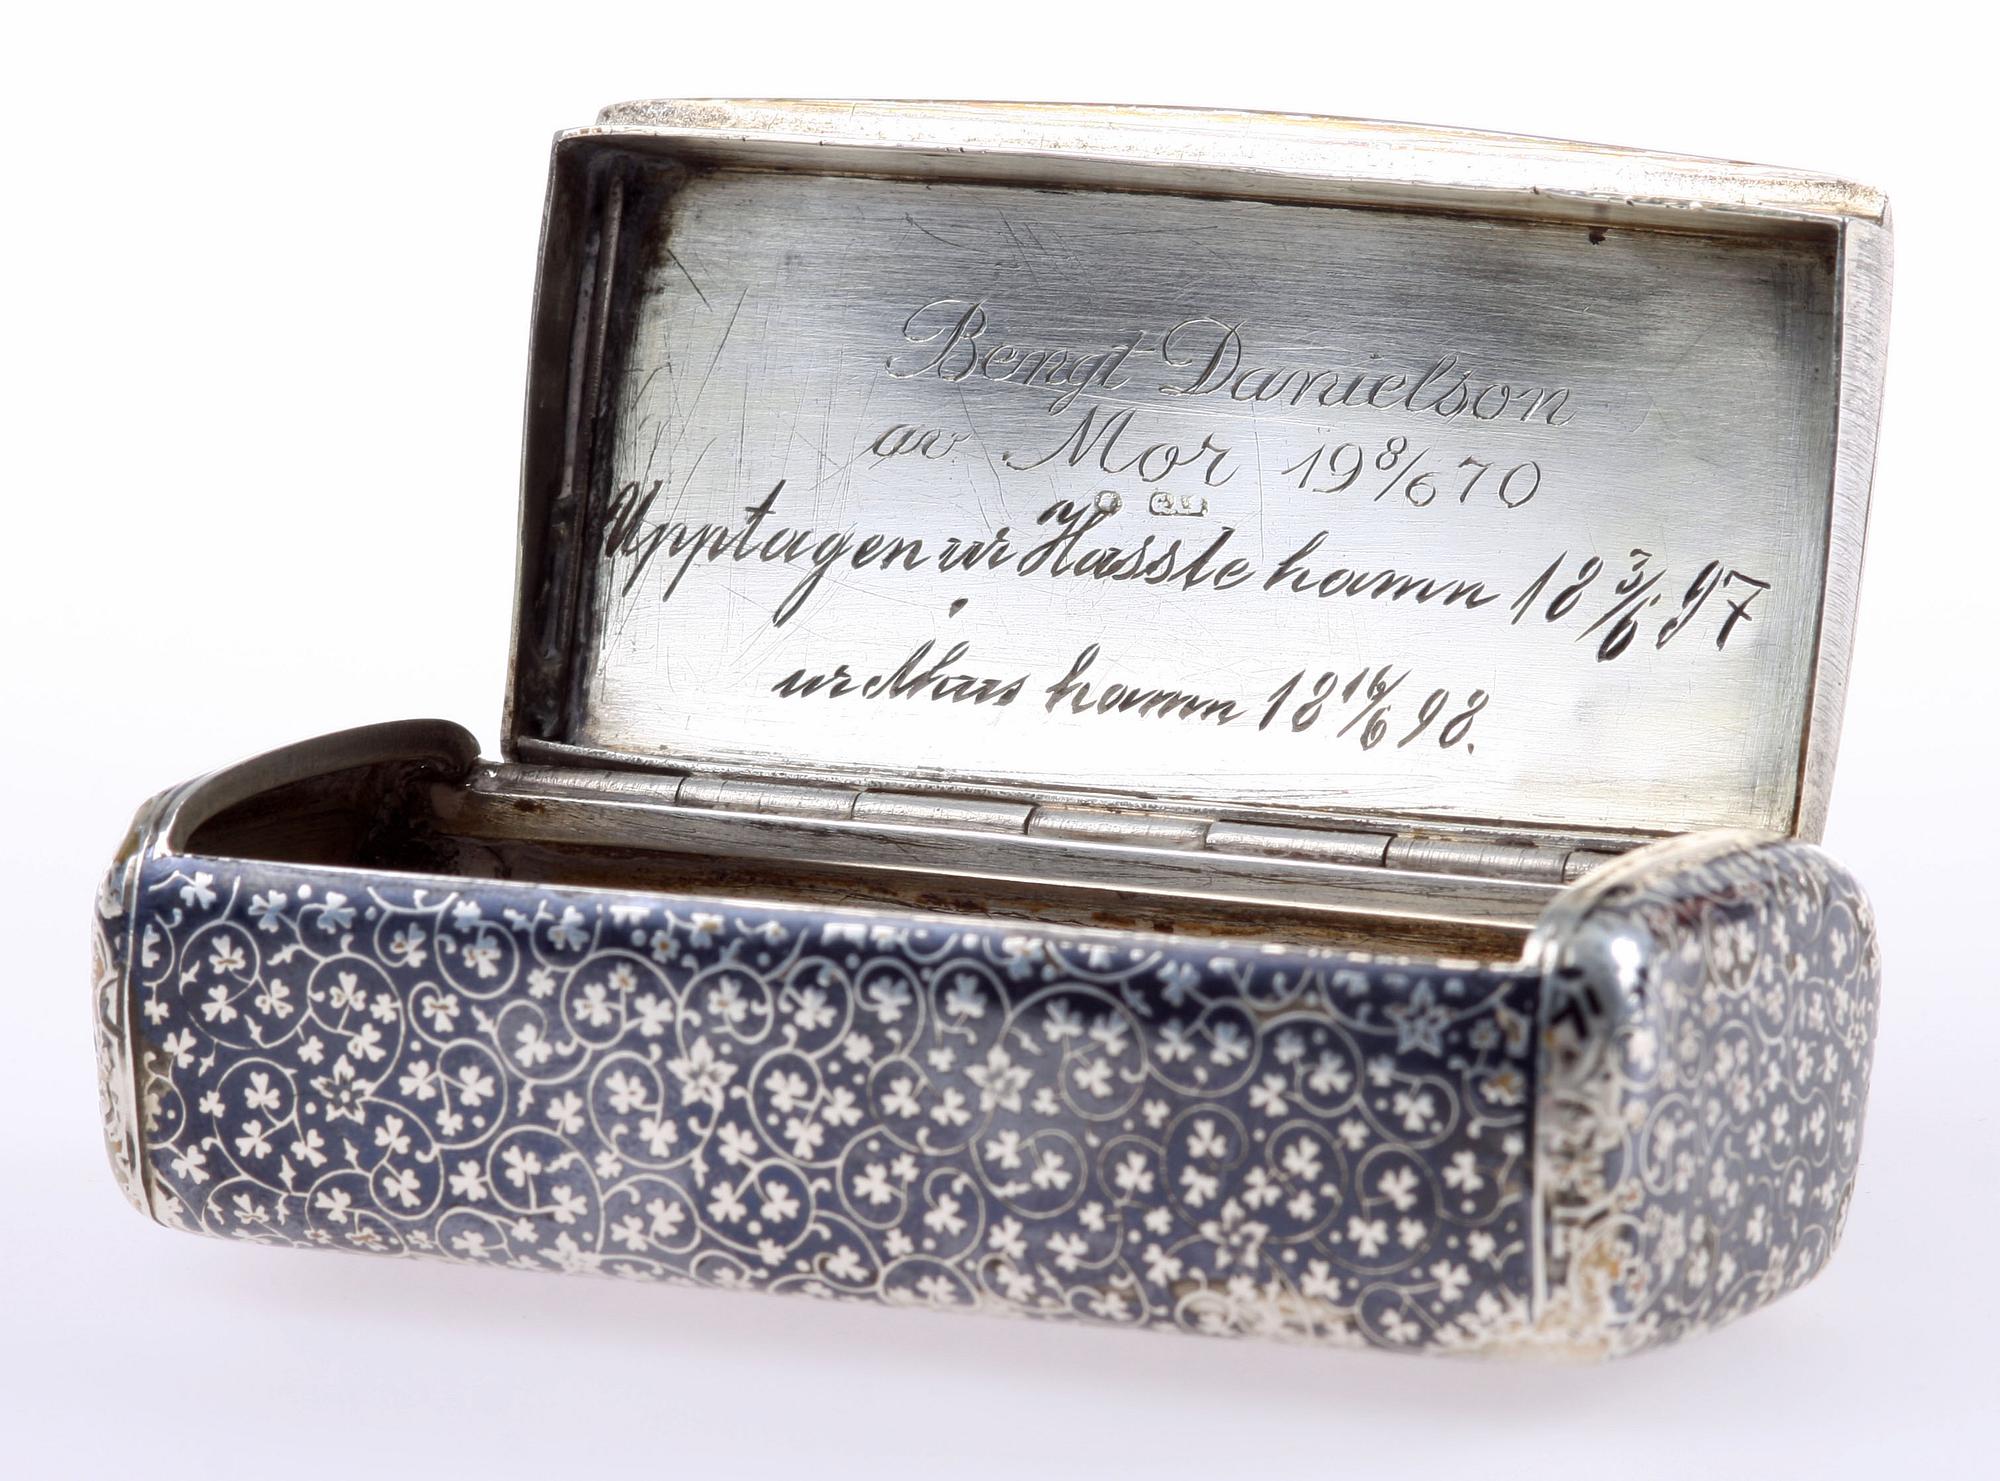 Bengt Danielson
av Mor 19 8/6 70
Upptagen ur Hässle hamn 18 3/6 97
ur Åhus hamn 18 16/6 98.